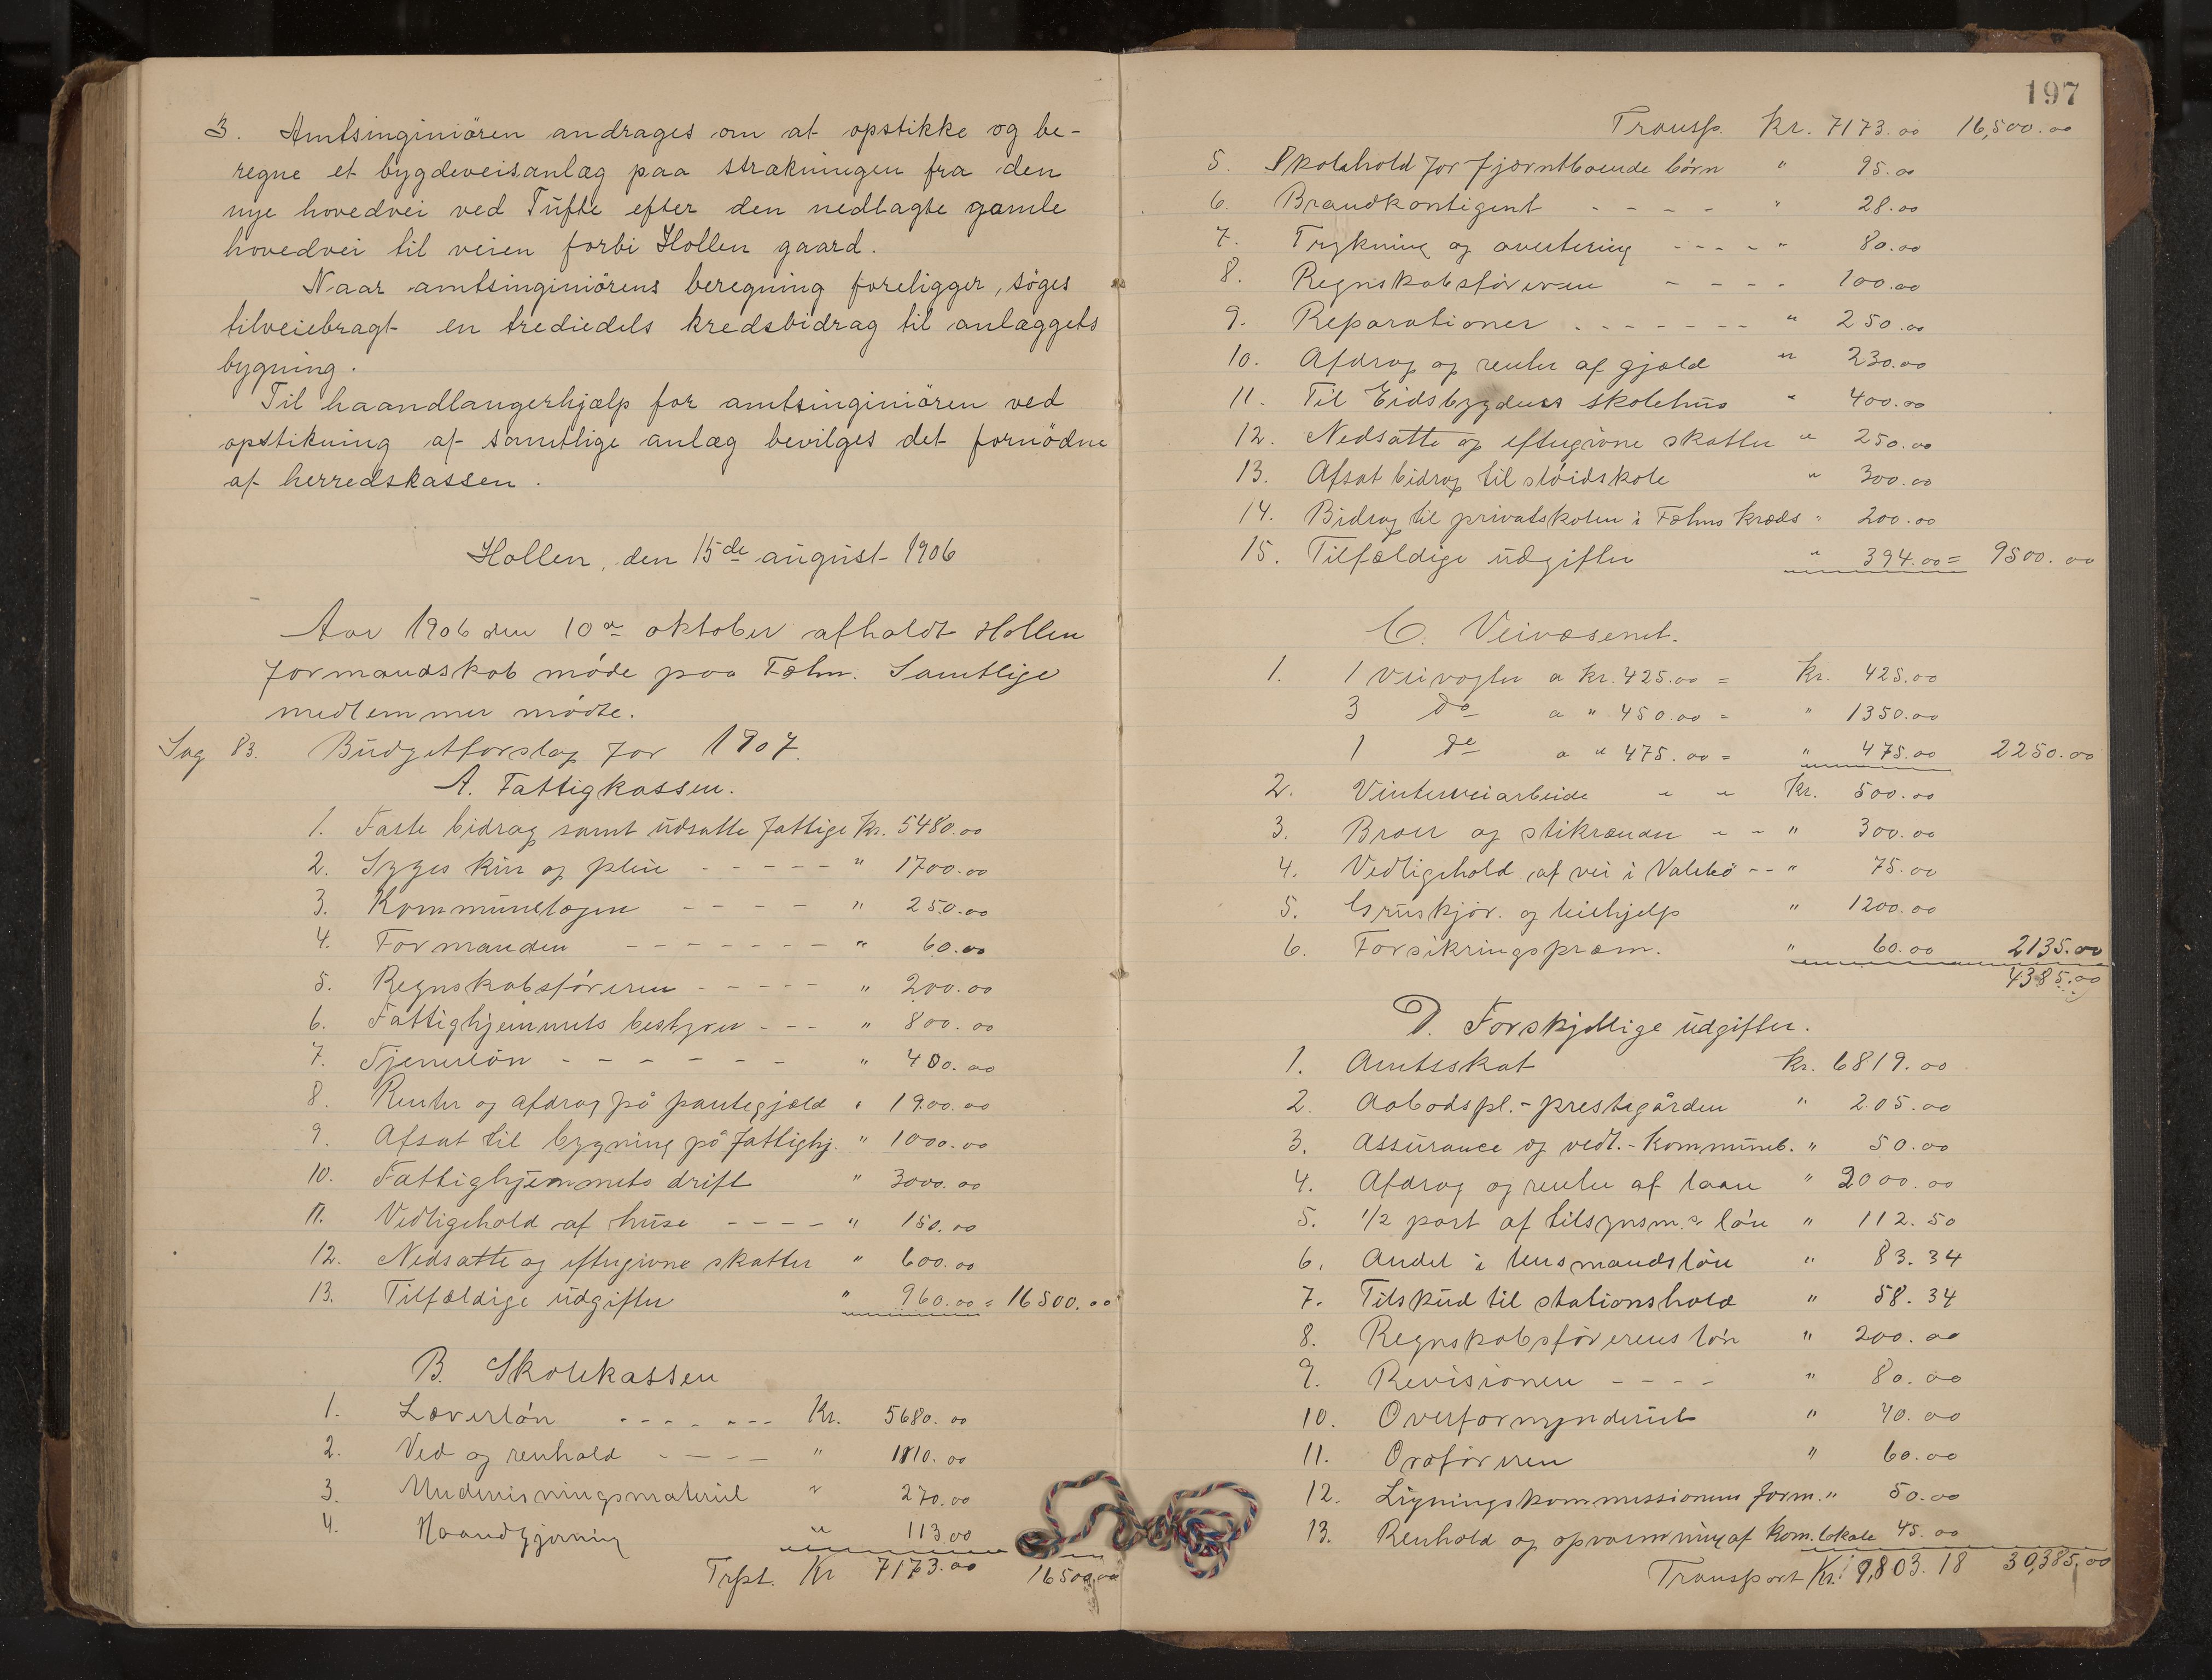 3. Amtsinginiören andrages om at opstikke og be-
regne et bygdeveisanlæg paa strækningen fra den
nye hovedvei ved Tufte efter den nedlagte gamle
hovedvei til veien forbi Hollen gaard.
Naar amtsinginiörens beregning foreligger, söges
tilveiebragt en trediedels kredsbidrag til anlæggets
bygning.
Til haandlangerhjælp for amtsinginiören ved
opstikning af samtlige anlæg bevilges det fornödne
af herredskassen.
Hollen, den 15de august 1906
Aar 1906 den 10de oktober afholdt Hollen
formandskab møde paa Fæhn. Samtlige
medlemmer mødte.
Sag 83. Budgetforslag for 1907.
A. Fattigkassen.
1. Faste bidrag samt udsatte fattige Kr. 5480.00
2. Syges kur og pleie - - - - - " 1700.00
3. Kommunelægen - - - - " 250.00
4. Formanden - - - - - - - " 60.00
5. Regnskabsføreren - - - - - " 200.00
6. Fattighjemmets bestyrer - - - " 800.00
7. Tjenerløn - - - - - - " 400.00
8. Renter og afdrag på pantegjæld " 1900.00
9. Afsat til bygning på fattighj. " 1000.00
10. Fattighjemmets drift " 3000.00
11. Vedligehold af huse - - - - " 150.00
12. Nedsatte og eftergivne skatter " 600.00
13. Tilfældige udgifter " 960.00 = 16500.00
B. Skolekassen
1. Lærerløn - - - - - - - Kr. 5680.00
2. Ved og renhold - - - - " 1110.00
3. Undervisningsmateriel " 270.00
4. Haandgjerning " 113.00
Trpt. Kr 7173.00 16500.00
197
Transp. Kr. 7173.00 16,500.00
5. Skolehold for fjærntboende børn " 95.00
6. Brandkontigent - - - - " 28.00
7. Trykning og avertering - - - - " 80.00
8. Regnskabsføreren - - - - 100.00
9. Reparationer - - - - - - - " 250.00
10. Afdrag og renter af gjæld " 230.00
11. Til Eidsbygdens skolehus " 400.00
12. Nedsatte og eftergivne skatter " 250.00
13. Afsat bidrag til sløidskole " 300.00
14. Bidrag til privatskolen i Fæhns kreds " 200.00
15. Tilfældige udgifter " 394.00 = 9500.00
C. Veivæsenet.
1. 1 veivogter a kr. 425.00 = Kr. 425.00
3 do a " 450.00 = " 1350.00
1 do a " 475.00 = " 475.00 2250.00
2. Vinterveiarbeide " " Kr. 500.00
3. Broer og stikrender - - " 300.00
4. Vedligehold af vei i Valebø - - " 75.00
5. Gruskjør. og leiehjelp " 1200.00
6. Forsikringspræm. " 60.00 2135.00
4385.00
D. Forskjellige udgifter.
1. Amtsskat Kr. 6819.00
2. Aabodspl. - prestegården " 205.00
3. Assurance og vedl. - Kommuneb. " 50.00
4. Afdrag og renter af laan " 2000.00
5. 1/2 part af tilsynsm.s løn " 112.50
6. Andel i lensmandsløn " 83.34
7. Tilskud til stationshold " 58.34
8. Regnskabsførerens løn " 200.00
9. Revisionen - - - - " 80.00
10. Overformynderiet " 40.00
11. Ordføreren " 60.00
12. Ligningskommissionens form. " 50.00
13. Renhold og opvarmning af kom. lokale 45.00
Transport Kr. 9,803.18 30,385,00